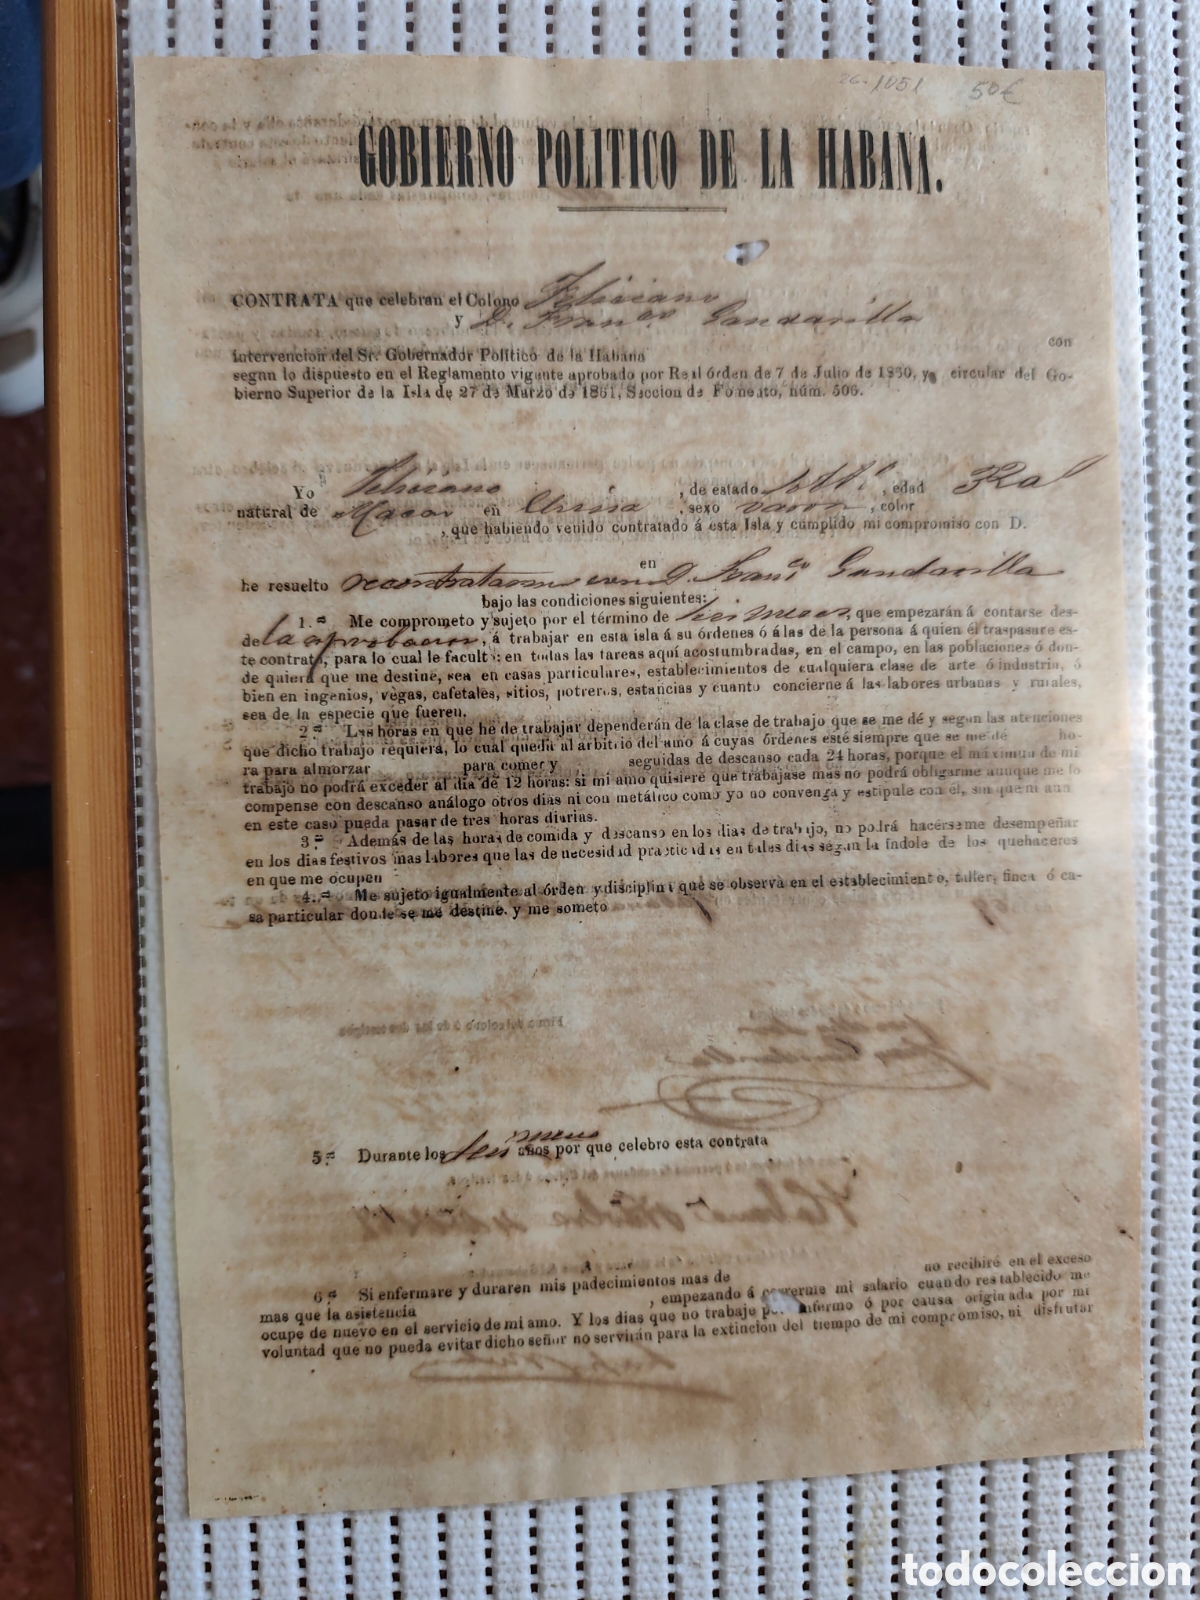 26-1051 50€
GOBIERNO POLITICO DE LA HABANA.
CONTRATA que celebran el Colono Feliciano
y D. Franco Gandarilla
con
intervencion del Sr. Gobernador Político de la Habana
segun lo dispuesto en el Reglamento vigente aprobado por Real órden de 7 de Julio de 1860, y circular del Go-
bierno Superior de la Isla de 27 de Marzo de 1861, Seccion de Fomento, núm. 506.
Yo Feliciano , de estado , edad
natural de Macao en China , sexo varon , color
, que habiendo venido contratado á esta Isla y cumplido mi compromiso con D.
en
he resuelto recontratarme con D. Franco Gandarilla
bajo las condiciones siguientes:
1.ª Me comprometo y sujeto por el término de seis meses, que empezarán á contarse des-
de la aprobacion, á trabajar en esta isla á su órdenes ó á las de la persona á quien él traspasare es-
te contrato, para lo cual le faculto: en todas las tareas aquí acostumbradas, en el campo, en las poblaciones ó don-
de quiera que me destine, sea en casas particulares, establecimientos de cualquiera clase de arte ó industria, ó
bien en ingenios, vegas, cafetales, sitios, potreros, estancias y cuanto concierne á las labores urbanas y rurales,
sea de la especie que fueren.
2.ª Las horas en que he de trabajar dependerán de la clase de trabajo que se me dé y segun las atenciones
que dicho trabajo requiera, lo cual queda al arbitrio del amo á cuyas órdenes esté siempre que se me dé ho-
ra para almorzar para comer y seguidas de descanso cada 24 horas, porque el máximun de mi
trabajo no podrá exceder al dia de 12 horas: si mi amo quisiere que trabajase mas no podrá obligarme aunque me lo
compense con descanso análogo otros dias ni con metálico como yo no convenga y estipule con él, sin que ni aun
en este caso pueda pasar de tres horas diarias.
3.ª Además de las horas de comida y descanso en los dias de trabajo, no podrá hacérseme desempeñar
en los dias festivos mas labores que las de necesidad practicadas en tales dias segun la índole de los quehaceres
en que me ocupen
4.ª Me sujeto igualmente al órden y disciplina que se observa en el establecimiento, taller, finca ó ca-
sa particular donde se me destine. y me someto
5.ª Durante los seis meses años por que celebro esta contrata
A
no recibiré en el exceso
6.ª Si enfermare y duraren mis padecimientos mas de
mas que la asistencia , empezando á correrme mi salario cuando restablecido me
ocupe de nuevo en el servicio de mi amo. Y los dias que no trabaje por enfermo ó por causa originada por mi
voluntad que no pueda evitar dicho señor no servirán para la extincion del tiempo de mi compromiso, ni disfrutar
todocoleccion